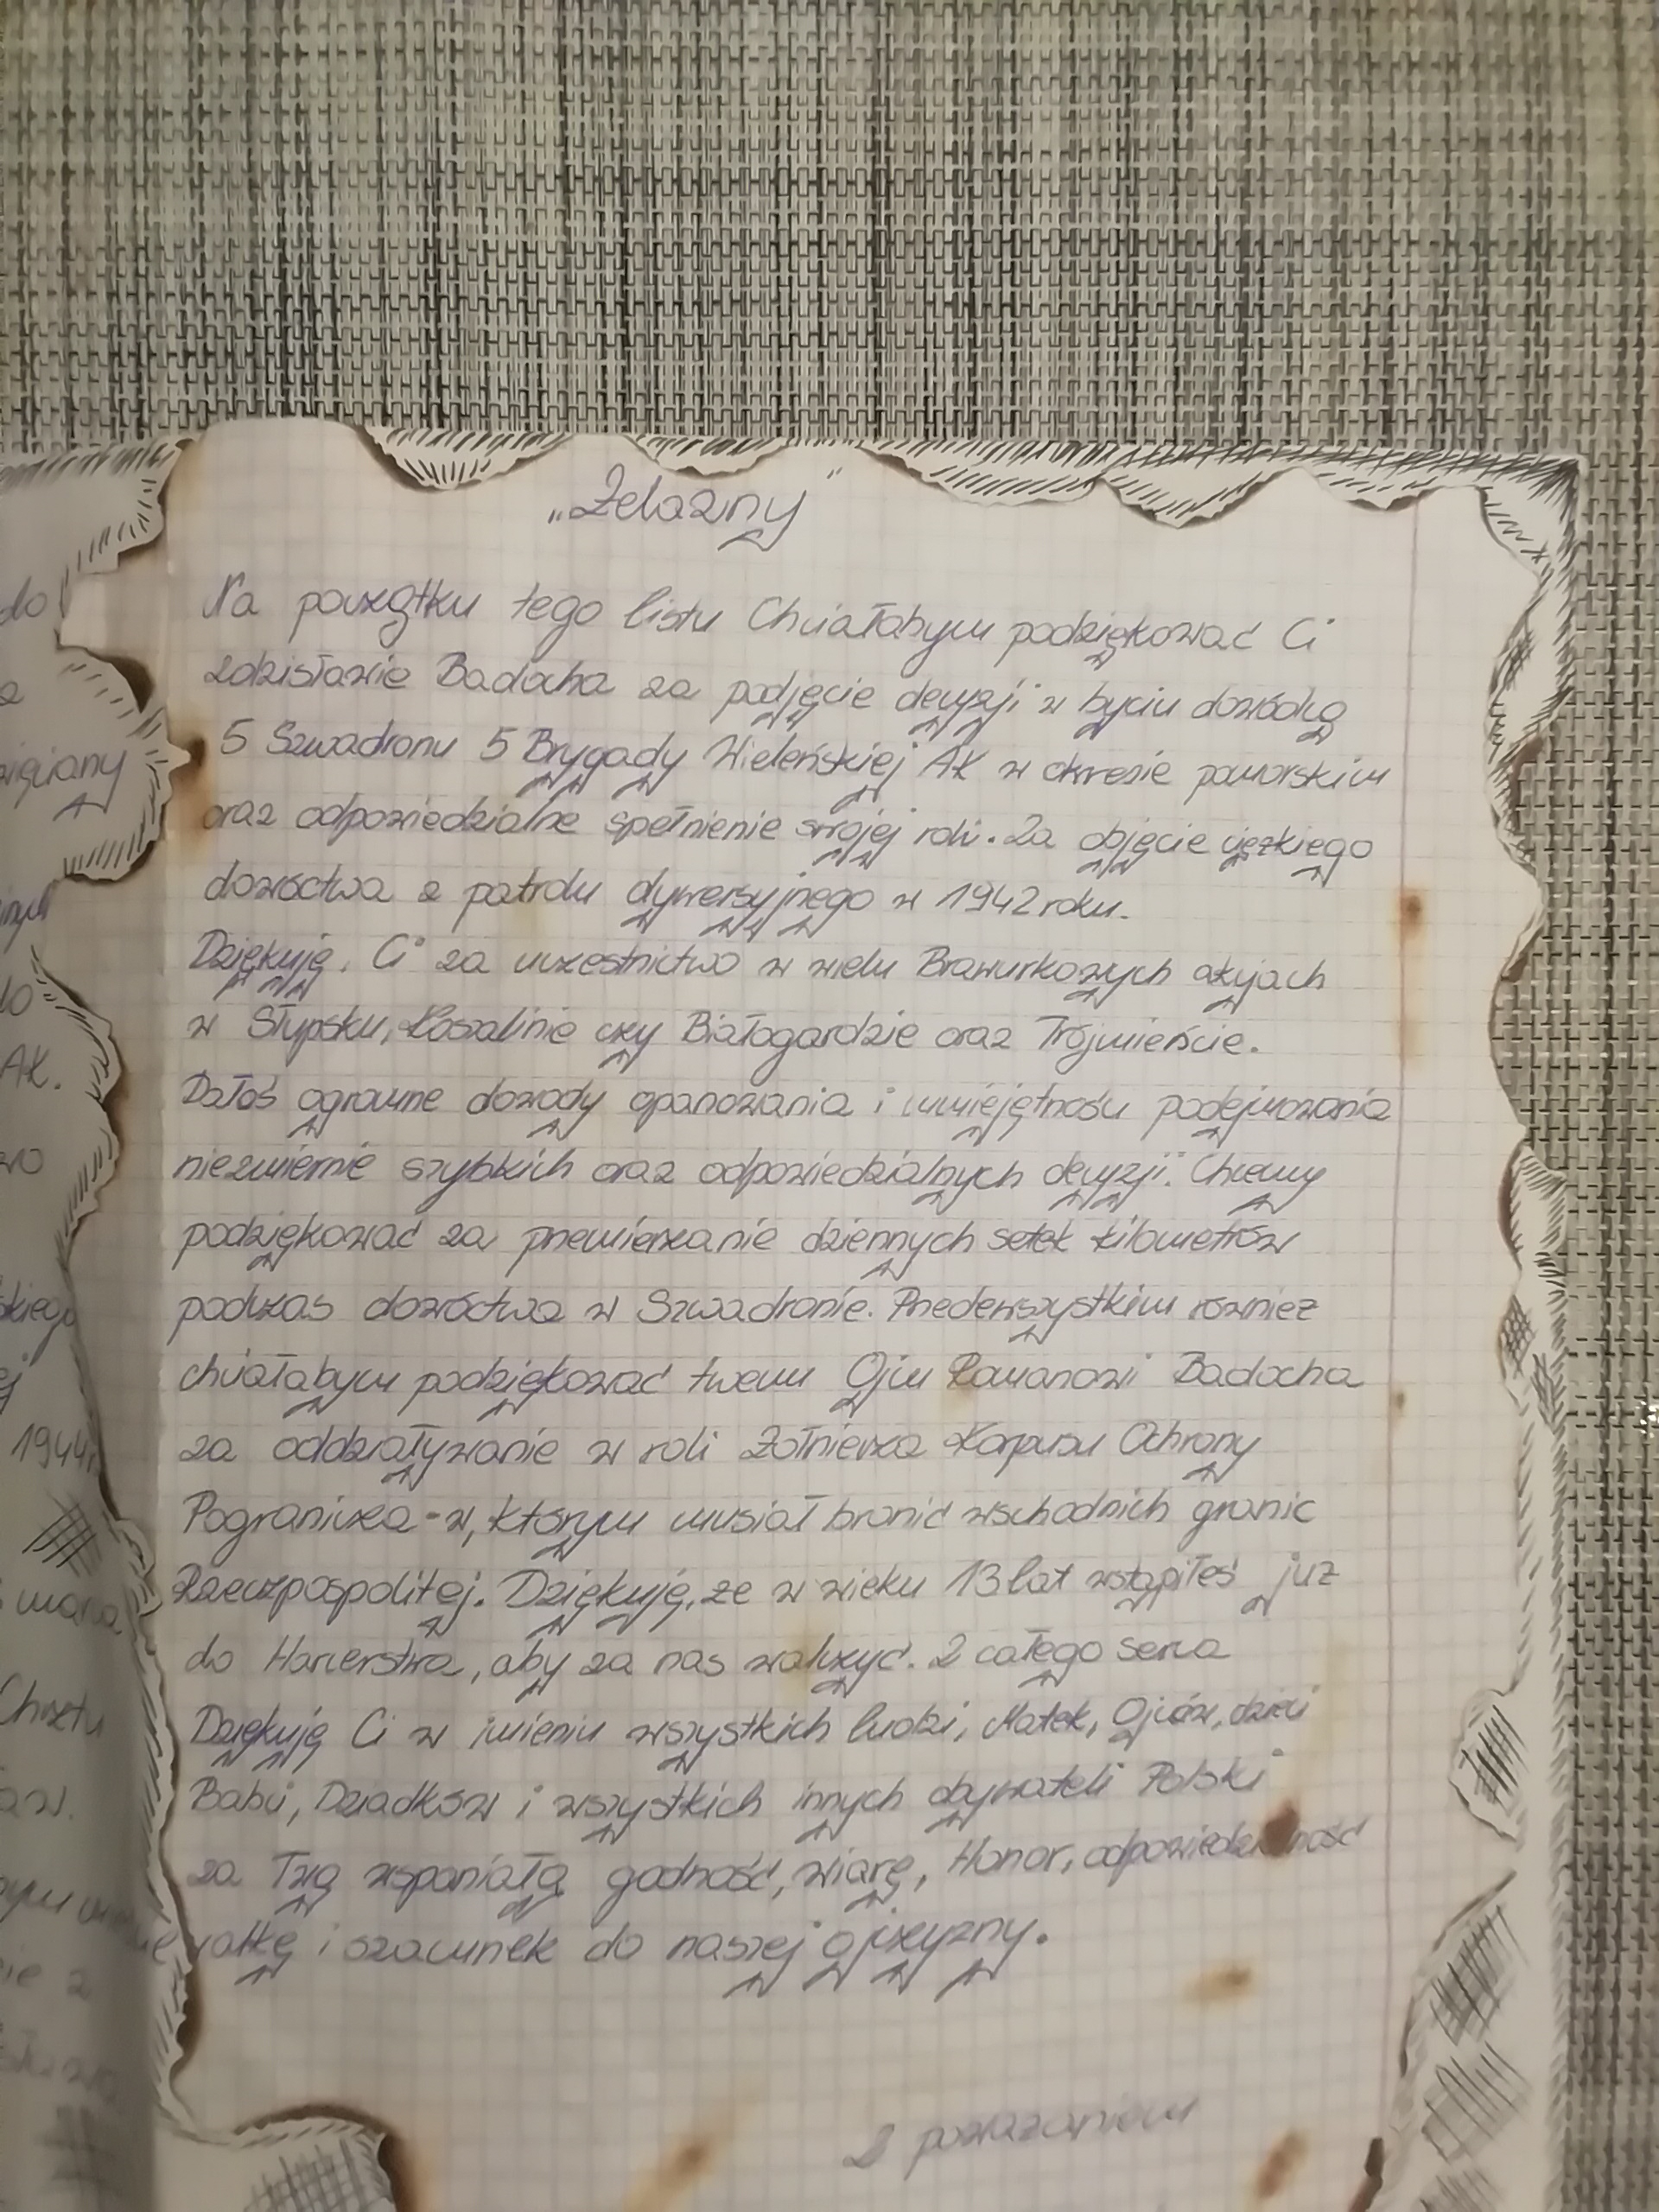 „Żelazny"
Na początku tego listu Chciałabym podziękować Ci
Zdzisławie Badocha za podjęcie decyzji w byciu dowódcą
5 Szwadronu 5 Brygady Wileńskiej AK w okresie pomorskim
oraz odpowiedzialne spełnienie swojej roli. Za objęcie ciężkiego
dowóctwa z patrolu dywersyjnego w 1942 roku.
Dziękuję, Ci za uczestnictwo w wielu Brawurkowych akcjach
w Słupsku, Koszalinie czy Białogardzie oraz Trójmieście.
Dałoś ogromne dowody opanowania i umiejętności podejmowania
niezmiernie szybkich oraz odpowiedzialnych decyzji. Chcemy
podziękować za przemierzanie dziennych setek kilometrów
podczas dowóctwa w Szwadronie. Przedewszystkim również
chciałabym podziękować twemu Ojcu Romanowi Badocha
za oddziaływanie w roli Żołnierza Korpusu Ochrony
Pogranicza-w, którym musiał bronić wschodnich granic
Rzeczpospolitej. Dziękuję, że w wieku 13 lat wstąpiłeś już
do Harcerstwa, aby za nas walczyć. Z całego serca
Dziękuję Ci w imieniu wszystkich ludzi, Matek, Ojców, dzieci
Babć, Dziadków i wszystkich innych obywateli Polski
za Twą wspaniałą godność, wiarę, Honor, odpowiedzialność
walkę i szacunek do naszej ojczyzny.
Z poważaniem
do
AK.
1944r